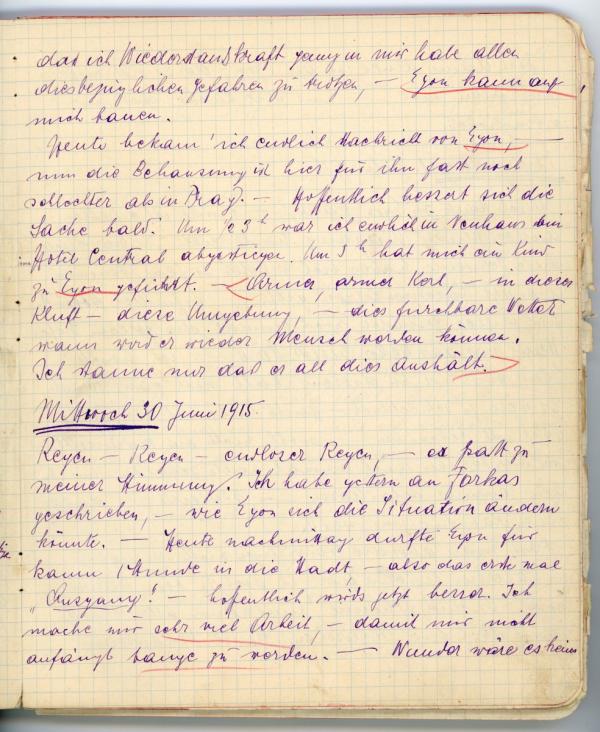 das ich Wiederstandskraft genug in mir habe allen
diesbezüglichen Gefahren zu trotzen, — Egon kann auf
mich bauen.
Heute bekam' ich endlich Nachricht von Egon, —
nun die Behausung ist hier für ihn fast noch
schlechter als in Prag. — Hoffentlich bessert sich die
Sache bald. Um ½ 3 h war ich endlich in Neuhaus bin
Hotel Central abgestiegen. Um 5 h hat mich ein Kind
zu Egon geführt. — Armer, armer Kerl, — in dieser
Kluft — diese Umgebung, — dies furchtbare Wetter
wann wird er wieder Mensch werden können.
Ich staune nur das er all dies aushält.
Mittwoch 30 Juni 1915.
Regen — Regen — endloser Regen, — es paßt zu
meiner Stimmung. Ich habe gestern an Farkas
geschrieben, — wie Egon sich die Situation ändern
könnte. — Heute nachmittag durfte Egon für
kaum 1 Stunde in die Stadt, — also das erste mal
„Ausgang! — hofentlich wirds jetzt besser. Ich
mache mir sehr viel Arbeit, — damit mir nicht
anfängt bange zu werden. — Wunder wäre es keines